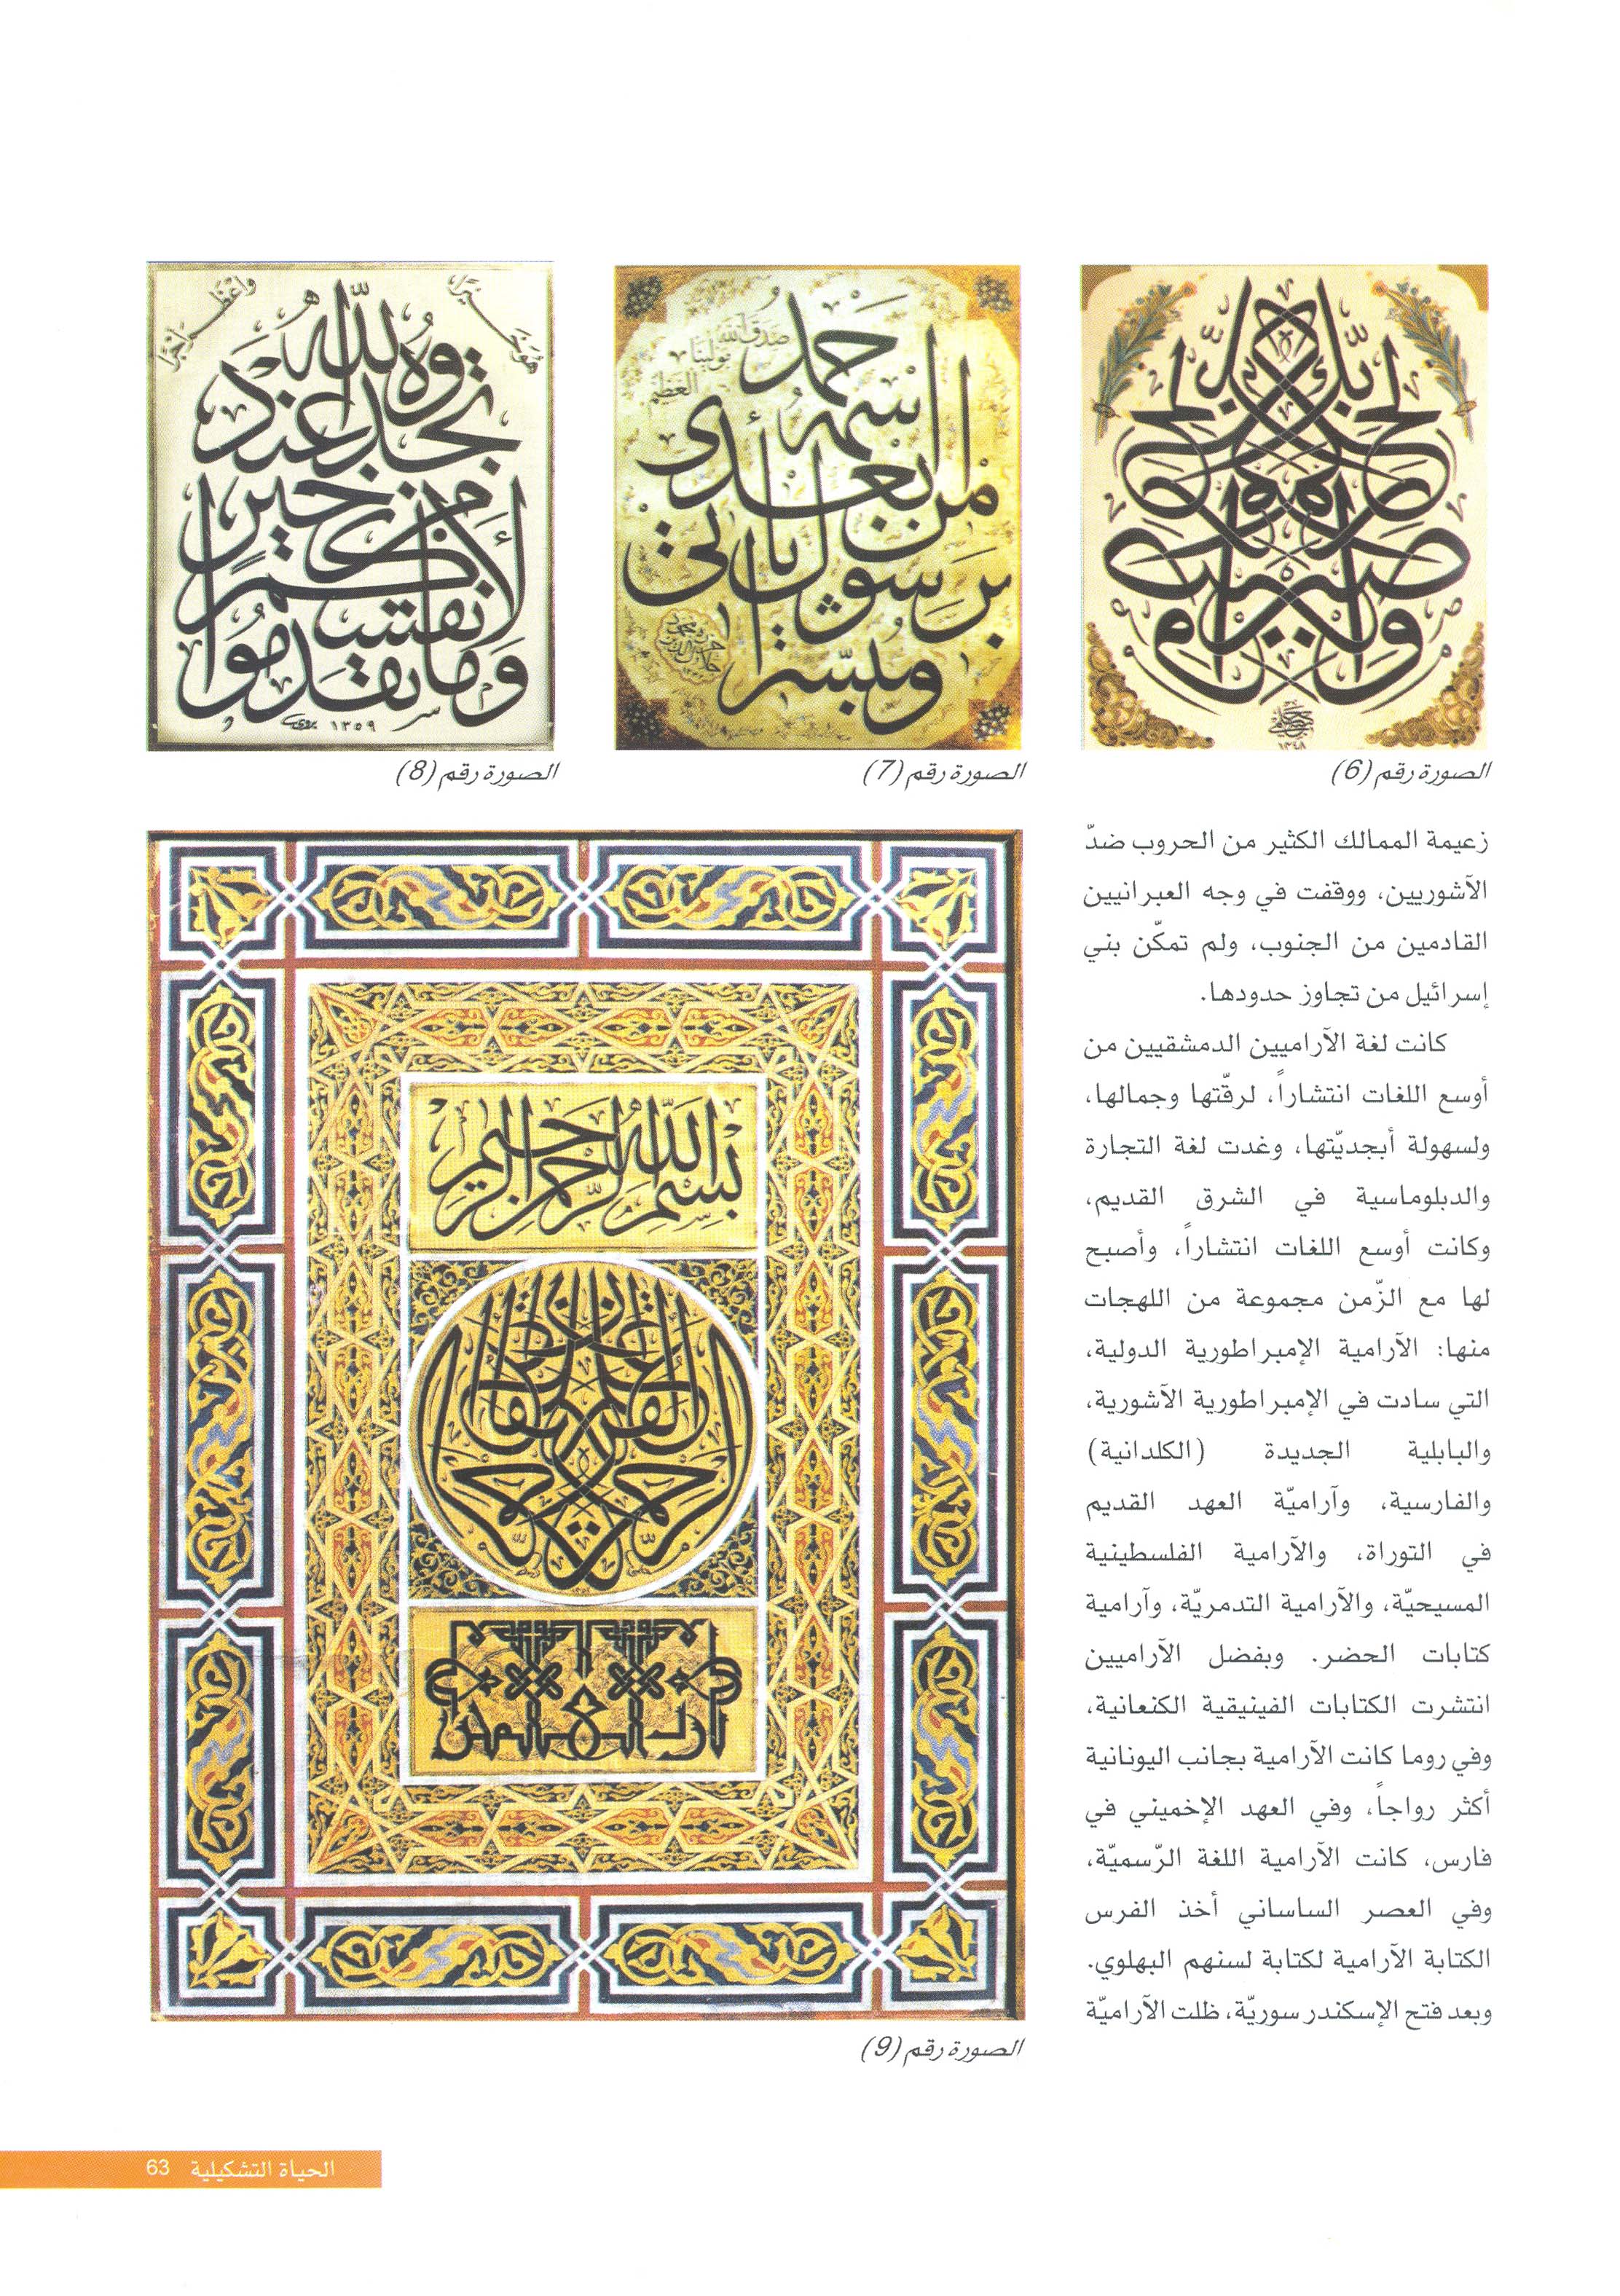 الصورة رقم (6)
الصورة رقم (7)
الصورة رقم (8)
ومبشرا
برسول يأتي
من بعدي
اسمه
أحمد
صدق الله
مولينا
العظيم
وما تقدموا
لأنفسكم
من خير
تجدوه عند
الله
هو
خيرا
وأعظم أجرا
١٣٥٩
١٣٤٨
زعيمة الممالك الكثير من الحروب ضدّ
الآشوريين، ووقفت في وجه العبرانيين
القادمين من الجنوب، ولم تمكّن بني
إسرائيل من تجاوز حدودها.
كانت لغة الآراميين الدمشقيين من
أوسع اللغات انتشاراً، لرقّتها وجمالها،
ولسهولة أبجديّتها، وغدت لغة التجارة
والدبلوماسية في الشرق القديم،
وكانت أوسع اللغات انتشاراً، وأصبح
لها مع الزّمن مجموعة من اللهجات
منها: الآرامية الإمبراطورية الدولية،
التي سادت في الإمبراطورية الآشورية،
والبابلية الجديدة (الكلدانية)
والفارسية، وآراميّة العهد القديم
في التوراة، والآرامية الفلسطينية
المسيحيّة، والآرامية التدمريّة، وآرامية
كتابات الحضر. وبفضل الآراميين
انتشرت الكتابات الفينيقية الكنعانية،
وفي روما كانت الآرامية بجانب اليونانية
أكثر رواجاً، وفي العهد الإخميني في
فارس، كانت الآرامية اللغة الرّسميّة،
وفي العصر الساساني أخذ الفرس
الكتابة الآرامية لكتابة لسنهم البهلوي.
وبعد فتح الإسكندر سوريّة، ظلت الآراميّة
بسم الله الرحمن الرحيم
الصورة رقم (9)
الحياة التشكيلية 63